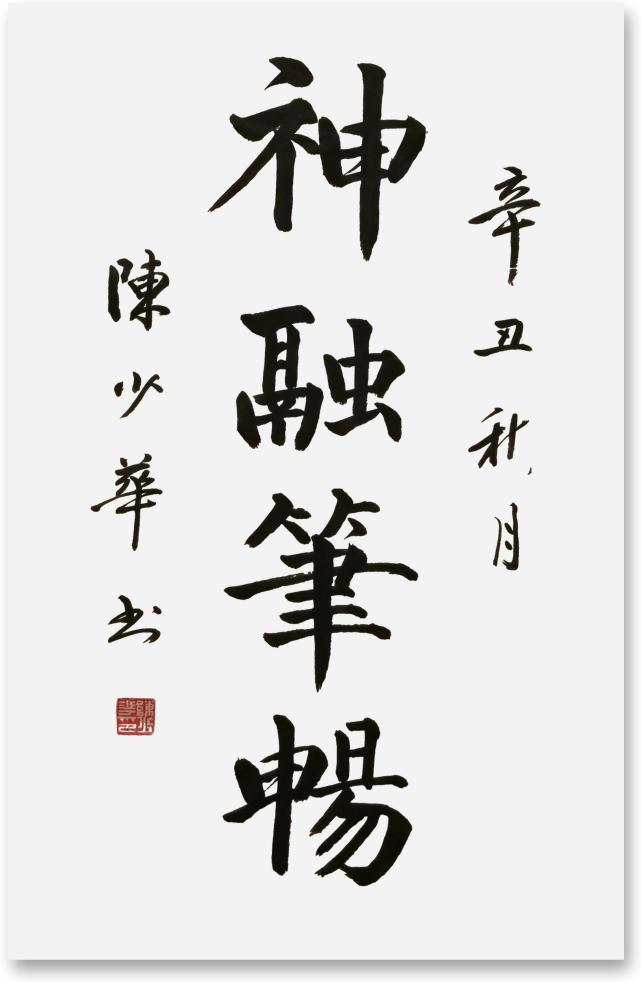 辛丑秋月
神融筆暢
陳少華书